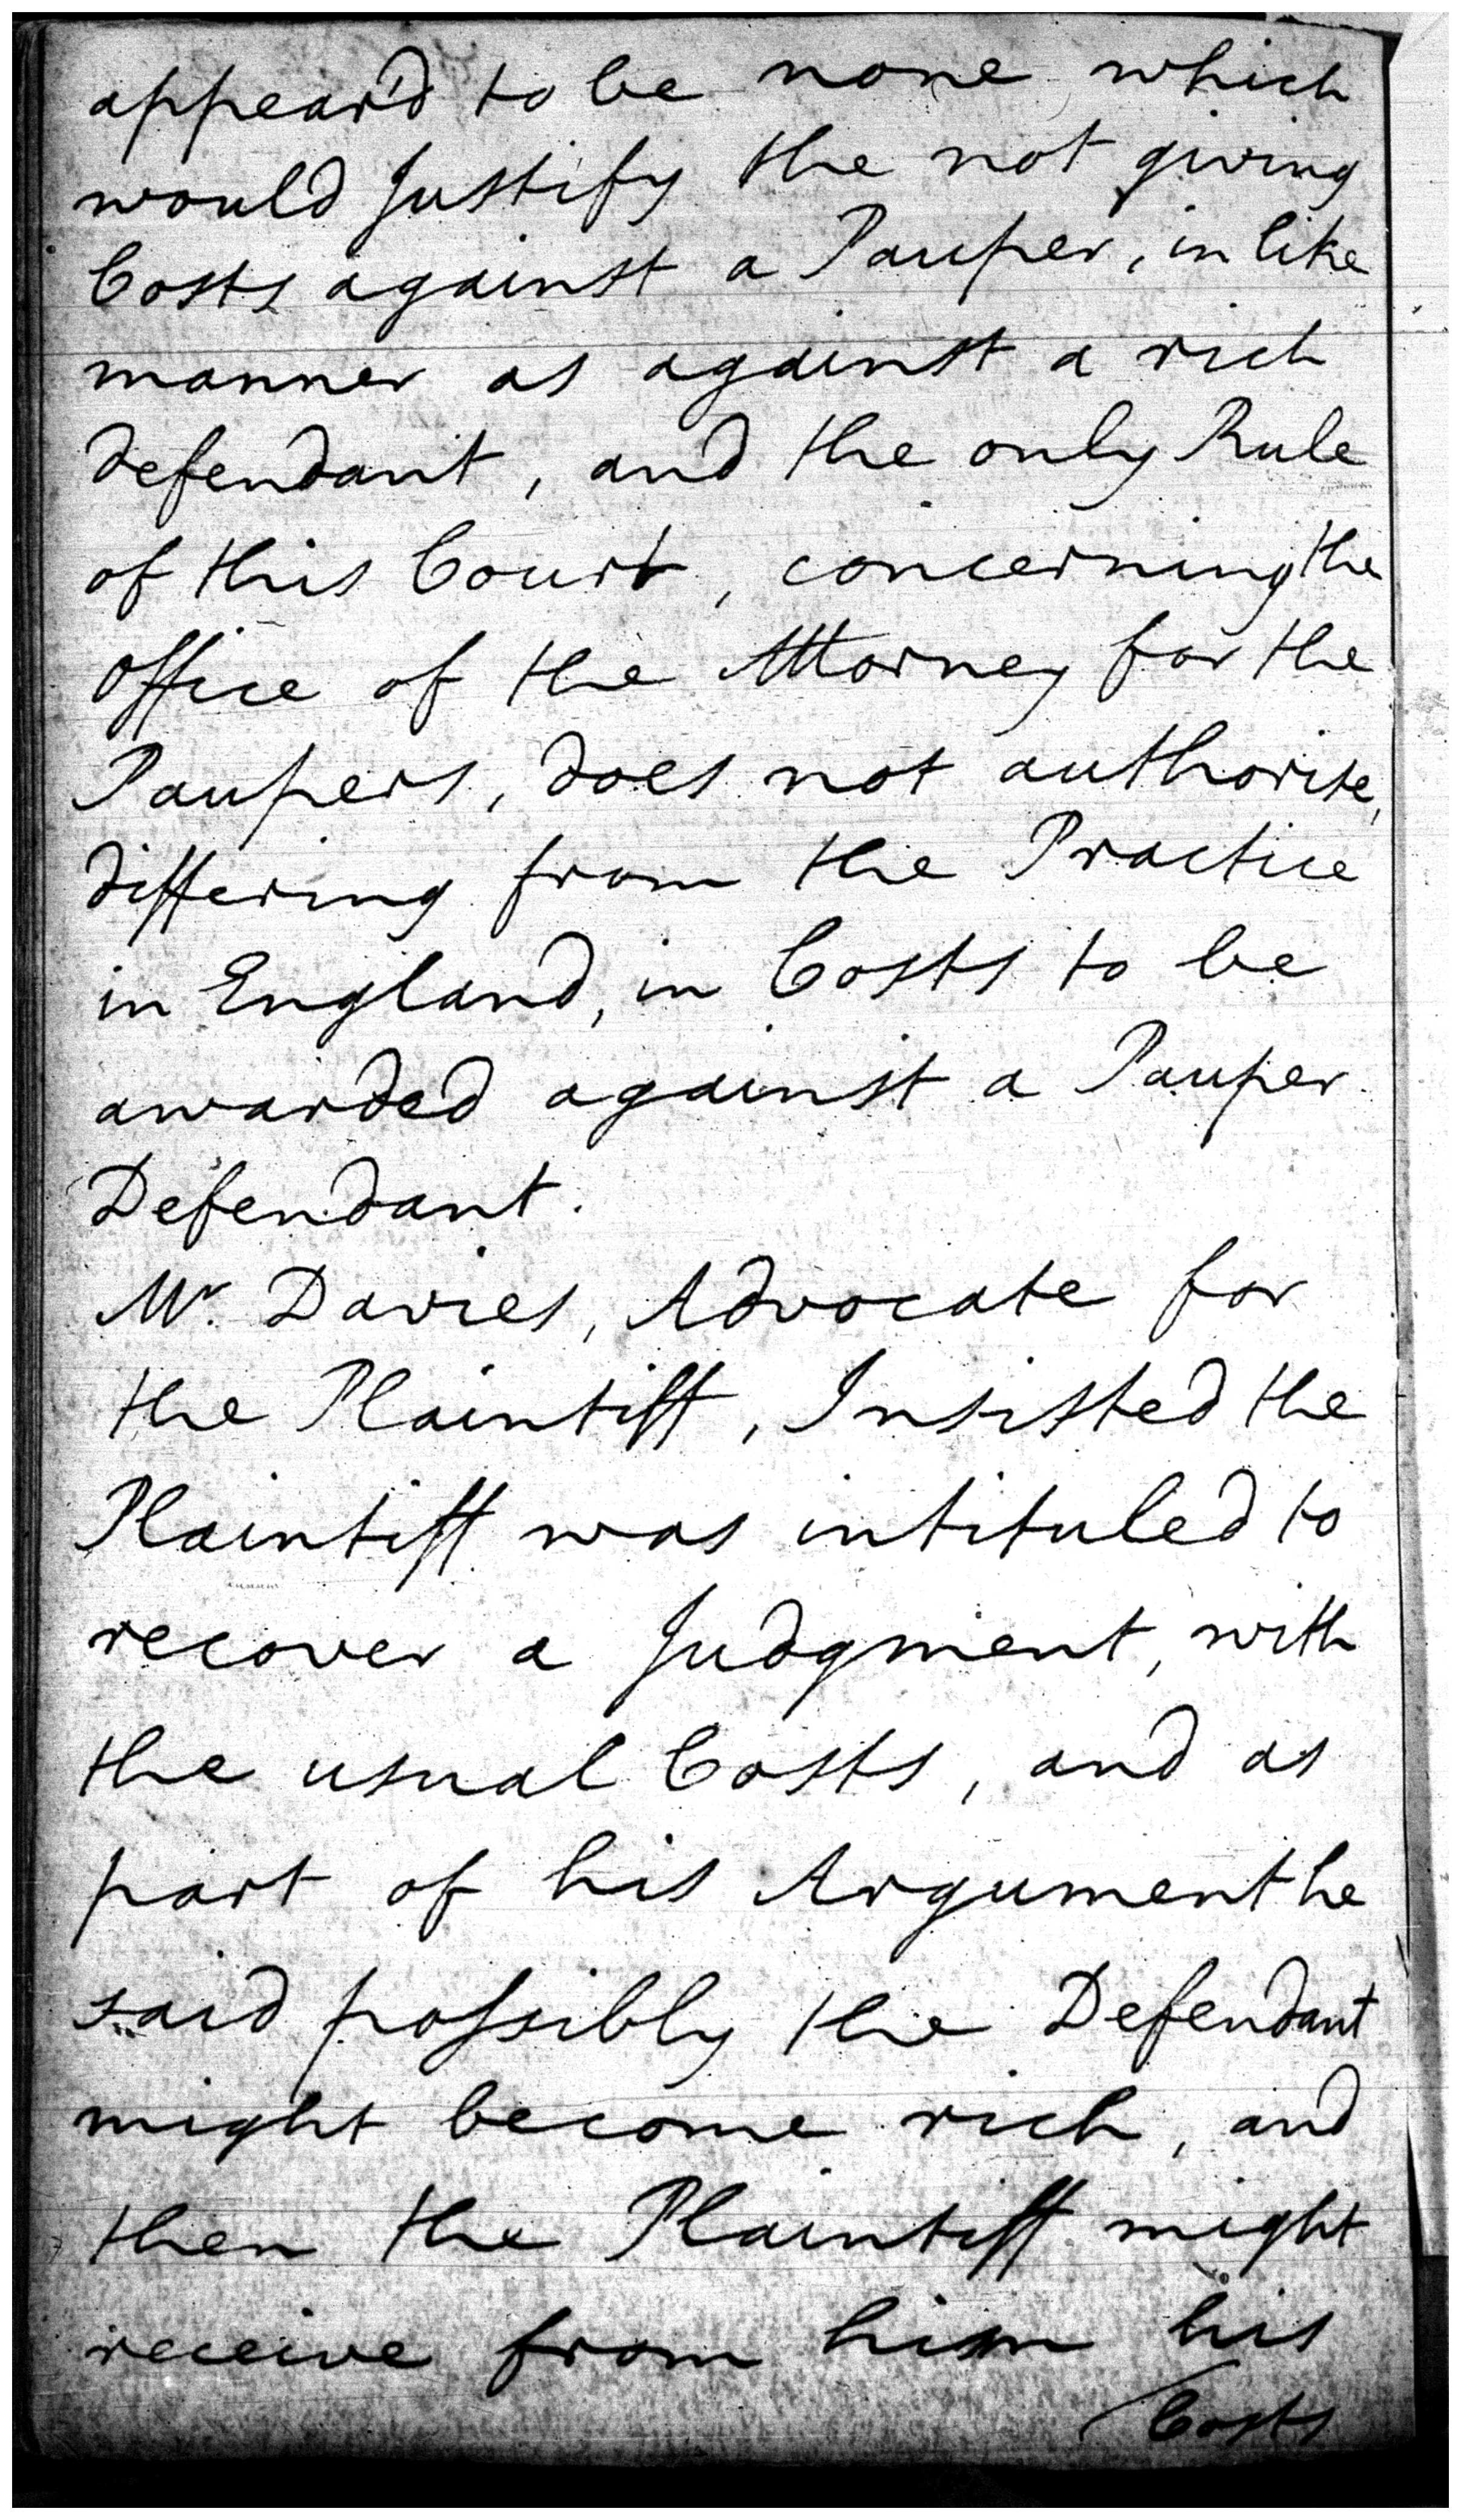 appear'd to be none which
would Justify the not giving
Costs against a Pauper, in like
manner as against a rich
defendant, and the only Rule
of this Court, concerning the
Office of the Attorney for the
Paupers, does not authorise,
differing from the Practice
in England, in Costs to be
awarded against a Pauper
Defendant.
Mr. Davies, Advocate for
the Plaintiff, Insisted the
Plaintiff was intituled to
recover a Judgment, with
the usual Costs, and as
part of his Argument he
said possibly the Defendant
might become rich, and
then the Plaintiff might
receive from him his
Costs